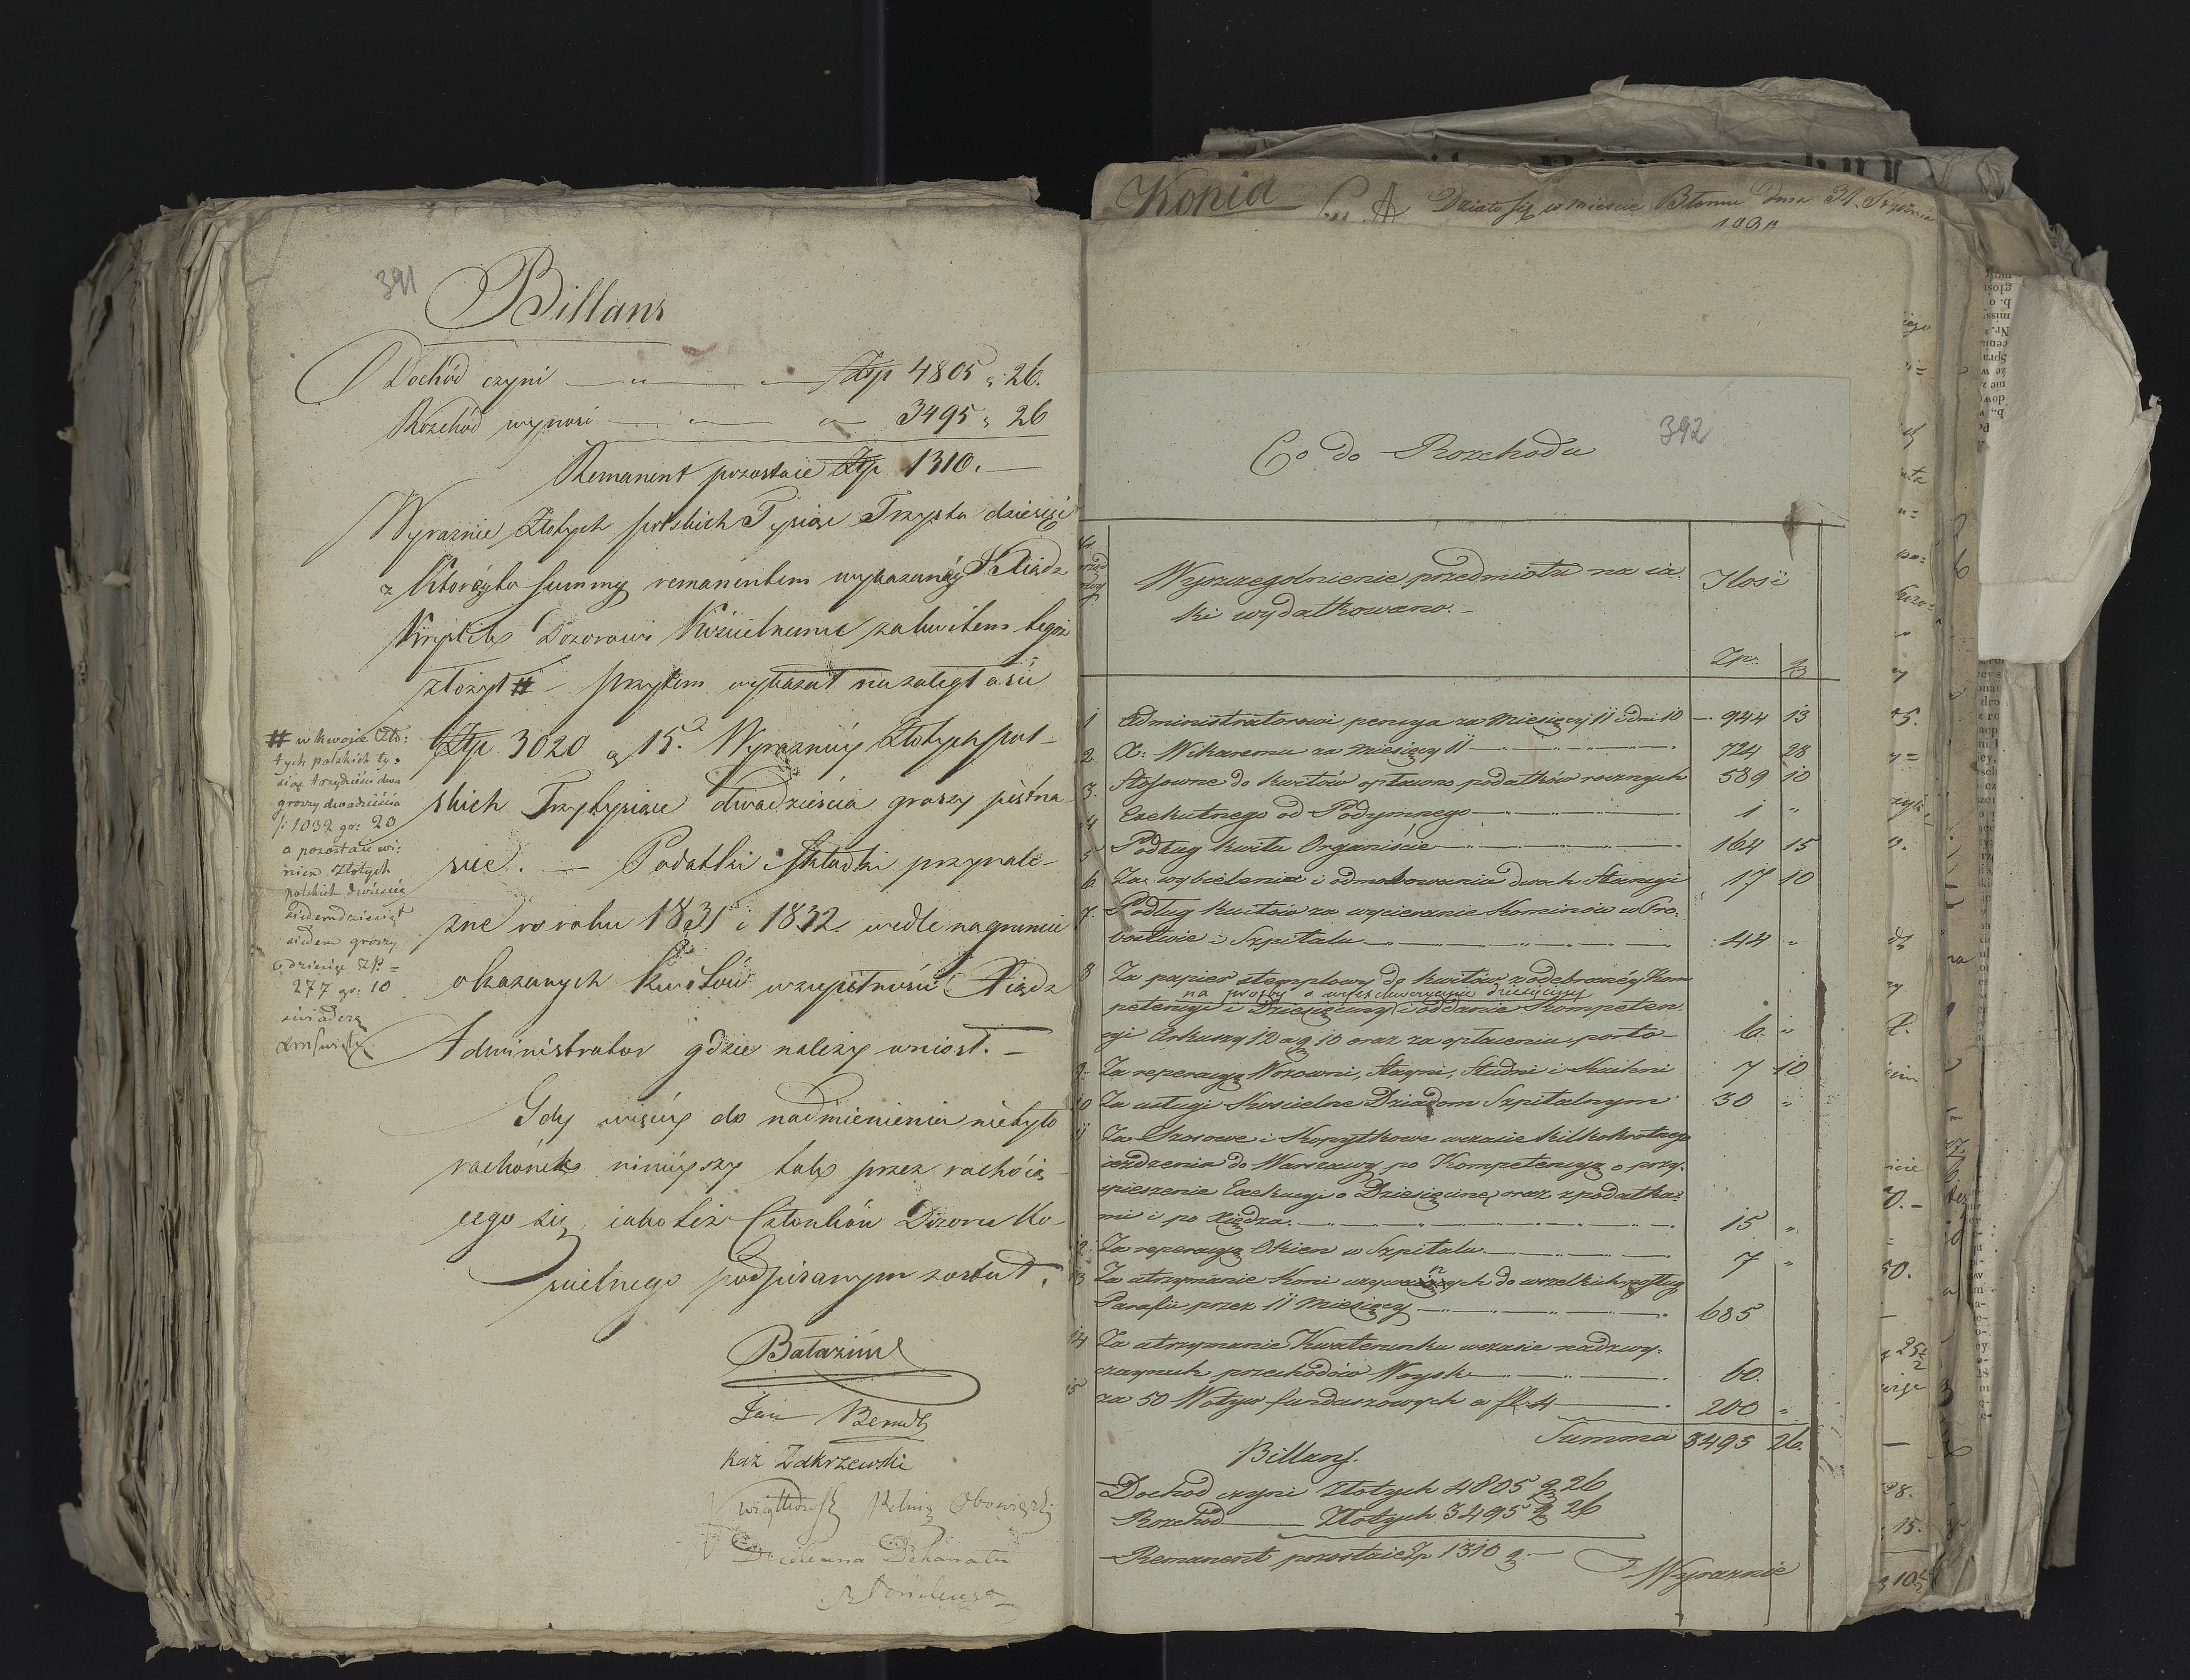 391
Billans
Dochód czyni Złp 4805 „ 26.
Rozchód wynosi 3495 „ 26
Remanent pozostaie Złp 1310. —
Wyraznie Złotych polskich Tysiąc Trzysta dziesięć
z którey to summy remanentem wykazanéy Xiądz
Dozorowi Kościelnemu za kwitem tegoż
złożył # — przytem wykazał na zaległości
Złp 3020 g 15. Wyraźniéy Złotych pol-
skich Trzytysiące dwadzieścia groszy piętna-
ście. — Podatki i składki przynale-
żne w roku 1831 i 1832. wedle na gruncie
okazanych kwitów w zupełności Xiądz
Administrator gdzie należy wniosł. —
Gdy więcéy do nadmienienia niebyło
rachónek niniéyszy tak przez rachóią-
cego się, iako też Członków Dozoru Ko-
ścielnego podpisanym został.
# w kwocie Zło:
tych polskich ty-
siąc trzydzieści dwa
groszy dwadzieścia
/: 1032 gr: 20
a pozostaie wi:
nien Złotych
polskich dwieście
siedemdziesiąt
siedem groszy
dziesięć ZP: =
277 gr: 10
Jan Berndt
Kaź Zakrzewski
Dziekana Dekanatu
Kopia
Działo się w mieście Błoniu dnia 31. Stycznia
392
Co do Rozchodu
Wyszczegolnienie przedmiotu na ia-
ki wydatkowano. —
Ilość
Zp. g
1 Administratorowi pensya za Miesięcy 11 i dni 10 — 944 13
2 X: Wikaremu za miesięcy 11 724 28
3. Stosownie do kwitów opłacono podatków rocznych 589 10
4 Exekutnego od Podymnego 1 „
5 Podług kwitu Organiście 164 15
6. Za wybielenie i odmalowanie dwoch Stancyi 17 10
7. Podług kwitów za wycieranie Kominów w Pro-
bostwie i Szpitalu 44 „
8 Za papier stemplowy do kwitów z odebranéy Kom
na prosby o
petencyi i Dziesięciny i oddanie Kompeten-
cyi Arkuszy 12 a g 10 oraz za opłacenie porto 6 „
9. Za reperacyą Wozowni, Stayni, Studni i Kuchni 7 10
10 Za usługi Koscielne Dziadom Szpitalnym 30 „
11 Za Szosowe i Kopytkowe w czasie kilkokrotnego
ieżdzenia do Warszawy po Kompetencyą o przy-
spieszenie Exekucyi o Dziesięcinę, oraz z podatka-
mi i po Xiędza. 15 „
12. Za reperacyą Okien w Szpitalu 7 „
13 Za utrzymanie Koni używanych do wszelkich posług
Parafii przez 11 Miesięcy 685
14 Za utrzymanie Kwaterunku w czasie nadzwy-
czaynych przechodów Woysk 60.
15 za 50 Wotyw funduszowych a fl. 4 200 „
Summa 3495 26.
Billans.
Dochod czyni Złotych 4805 g 26
Rozchod Złotych 3495 g 26
Remanent pozostaie Zp 1310 g. —
Wyraznie